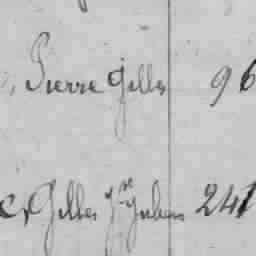 Pierre Gilles 96
Gilles 241